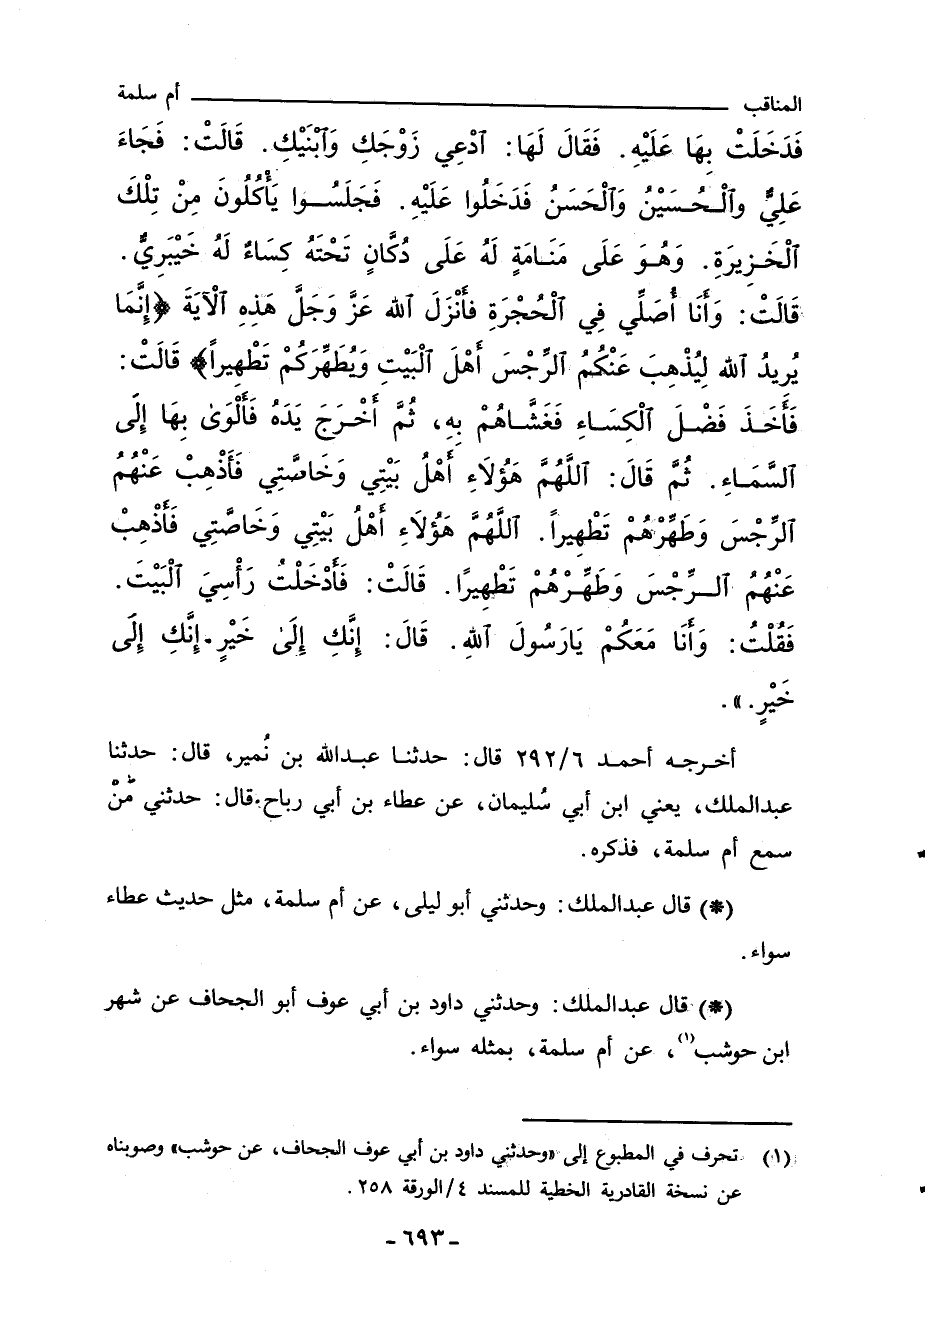 المناقب ــــــــــــــــــــــــــــــ أم سلمة
فَدَخَلَتْ بِهَا عَلَيْهِ. فَقَالَ لَهَا: ٱدْعِي زَوْجَكِ وَٱبْنَيْكِ. قَالَتْ: فَجَاءَ
عَلِيٌّ وٱلْحُسَيْنُ وَٱلْحَسَنُ فَدَخَلُوا عَلَيْهِ. فَجَلَسُوا يَأْكُلُونَ مِنْ تِلْكَ
ٱلْخَزِيرَةِ. وَهُوَ عَلَى مَنَامَةٍ لَهُ عَلَى دُكَّانٍ تَحْتَهُ كِسَاءٌ لَهُ خَيْبَرِيٌّ.
قَالَتْ: وَأَنَا أُصَلِّي فِي ٱلْحُجْرَةِ فَأَنْزَلَ ٱلله عَزَّ وَجَلَّ هَذِهِ ٱلْآيَةَ ﴿إِنَّمَا
يُرِيدُ ٱلله لِيُذْهِبَ عَنْكُمُ ٱلرِّجْسَ أَهْلَ ٱلْبَيْتِ وَيُطَهِّرَكُمْ تَطْهِيراً﴾ قَالَتْ:
فَأَخَذَ فَضْلَ ٱلْكِسَاءِ فَغَشَّاهُمْ بِهِ، ثُمَّ أَخْرَجَ يَدَهُ فَأَلْوَىٰ بِهَا إِلَى
ٱلسَّمَاءِ. ثُمَّ قَالَ: ٱللَّهُمَّ هَؤُلَاءِ أَهْلُ بَيْتِي وَخَاصَّتِي فَأَذْهِبْ عَنْهُمُ
ٱلرِّجْسَ وَطَهِّرْهُمْ تَطْهِيراً. ٱللَّهُمَّ هَؤُلَاءِ أَهْلُ بَيْتِي وَخَاصَّتِي فَأَذْهِبْ
عَنْهُمُ ٱلرِّجْسَ وَطَهِّرْهُمْ تَطْهِيرًا. قَالَتْ: فَأَدْخَلْتُ رَأْسِيَ ٱلْبَيْتَ.
فَقُلْتُ: وَأَنَا مَعَكُمْ يَارَسُولَ ٱللهِ. قَالَ: إِنَّكِ إِلَىٰ خَيْرٍ. إِنَّكِ إِلَى
خَيْرٍ.».
أخرجه أحمد ٢٩٢/٦ قال: حدثنا عبدالله بن نُمير، قال: حدثنا
عبدالملك، يعني ابن أبي سُليمان، عن عطاء بن أبي رباح. قال: حدثني مَنْ
سمع أم سلمة، فذكره.
(*) قال عبدالملك: وحدثني أبو ليلى، عن أم سلمة، مثل حديث عطاء
سواء.
(*) قال عبدالملك: وحدثني داود بن أبي عوف أبو الجحاف عن شهر
ابن حوشب(١)، عن أم سلمة، بمثله سواء.
(١) تحرف في المطبوع إلى «وحدثني داود بن أبي عوف الجحاف، عن حوشب» وصوبناه
عن نسخة القادرية الخطية للمسند ٤/الورقة ٢٥٨.
- ٦٩٣ -